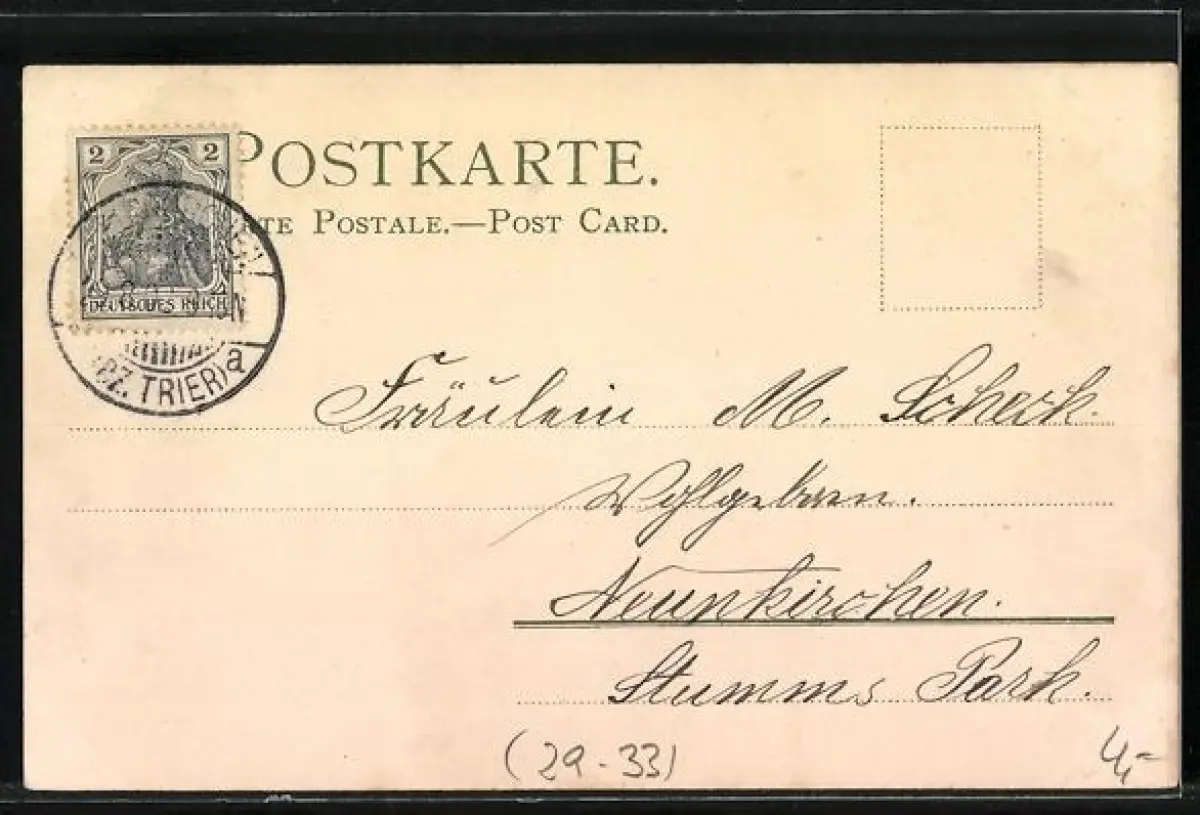 2 2
DEUTSCHES REICH
TRIER) a
POSTKARTE.
POSTALE.—POST CARD.
Fräulein M. Scheck.
Wohlgeboren.
Neunkirchen.
Stumms Park.
(29-33)
4,-